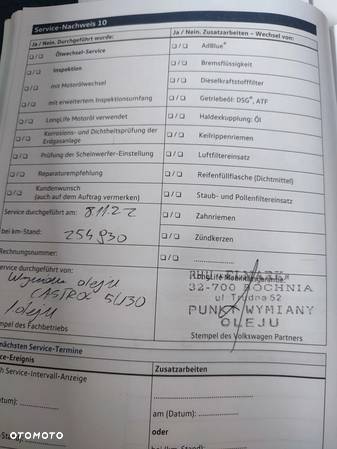 Service-Nachweis 10
Ja / Nein. Durchgeführt wurde:
Ja / Nein. Zusatzarbeiten – Wechsel von:
❑ / ❑ Ölwechsel-Service
❑ / ❑ AdBlue®
❑ / ❑ Inspektion
❑ / ❑ Bremsflüssigkeit
❑ / ❑ mit Motorölwechsel
❑ / ❑ Dieselkraftstofffilter
❑ / ❑ mit erweitertem Inspektionsumfang
❑ / ❑ Getriebeöl: DSG®, ATF
❑ / ❑ LongLife Motoröl verwendet
❑ / ❑ Haldexkupplung: Öl
❑ / ❑ Korrosions- und Dichtheitsprüfung der Erdgasanlage
❑ / ❑ Keilrippenriemen
❑ / ❑ Prüfung der Scheinwerfer-Einstellung
❑ / ❑ Luftfiltereinsatz
❑ / ❑ Reparaturempfehlung
❑ / ❑ Reifenfüllflasche (Dichtmittel)
❑ / ❑ Kundenwunsch
(auch auf dem Auftrag vermerken)
❑ / ❑ Staub- und Pollenfiltereinsatz
Service durchgeführt am: 8.11.22
❑ / ❑ Zahnriemen
bei km-Stand: 254930
❑ / ❑ Zündkerzen
Rechnungsnummer:
❑ / ❑
Service durchgeführt von:
LongLife Mobilitätsgarantie
Wymiana oleju
CASTROL 5W30
32-700 BOCHNIA
ul Trudna 52
PUNKT WYMIANY
OLEJU
Stempel des Fachbetriebs
Stempel des Volkswagen Partners
nächsten Service-Termine
Service-Ereignis
Zusatzarbeiten
Service-Intervall-Anzeige
(Datum):
am (Datum):
oder
OTOMOTO